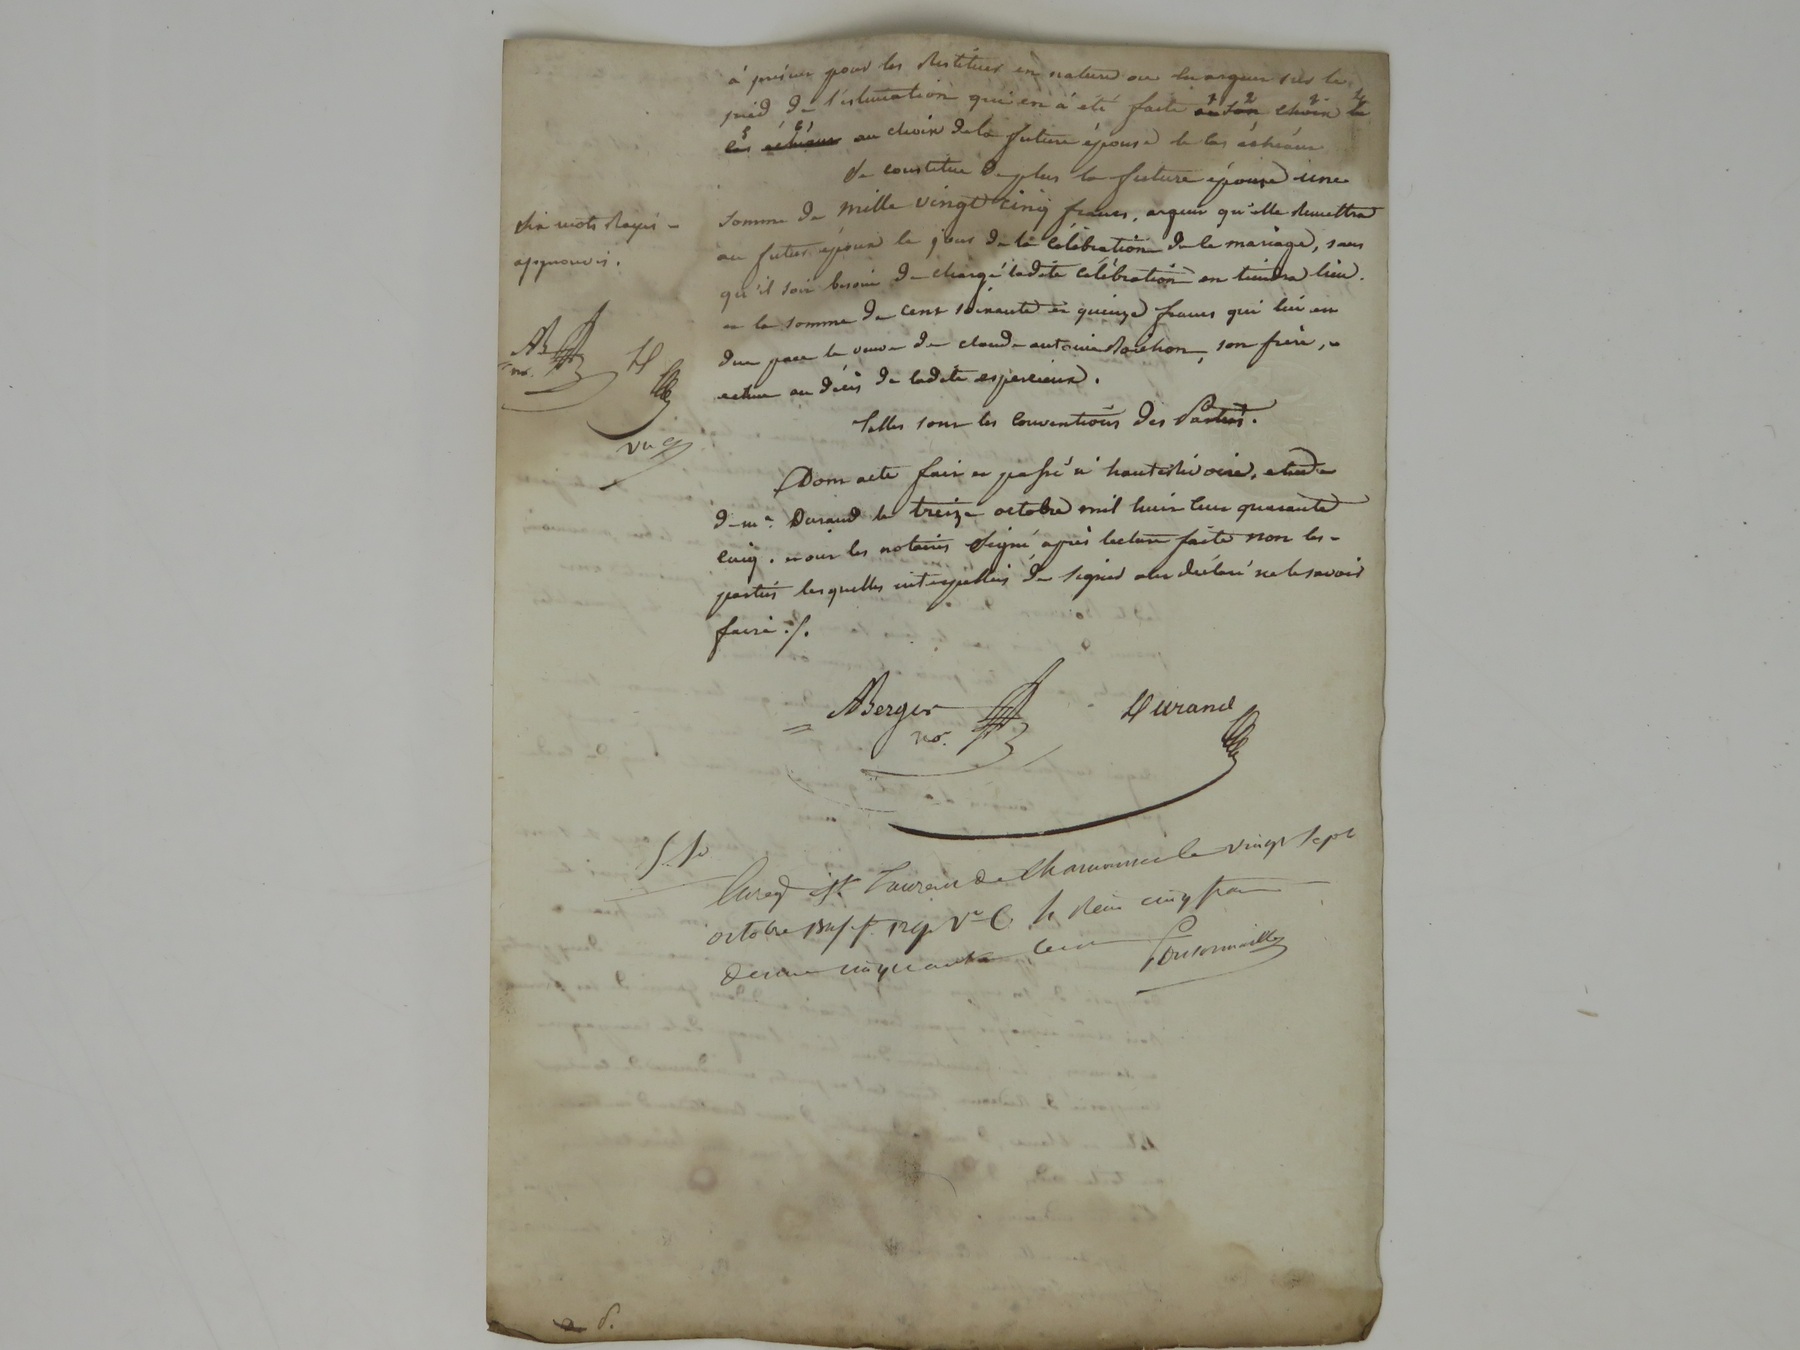 à présent pour les restituer en nature ou en argent sur le
pied de l'estimation qui en a été faite à son choix et
les échéant au choix de la future épouse et le cas échéant
Se constitue de plus la future épouse une
somme de mille vingt cinq francs, argent qu'elle remettra
au futur époux le jour de la célébration de le mariage, sans
qu'il soit besoin de charge ladite célébration en tiendra lieu.
et la somme de cent soixante et quinze francs qui lui est
due par la veuve de claude antoine, son frère,
échue au décès de ladite
Telles sont les conventions des Parties.
Six mots rayés
approuvés.
AB
no.
D
Dont acte fait et passé à hauterivoire, étude
de me Durand le treize octobre mil huit cent quarante
cinq. et ont les notaires signé après lecture faite non les
parties lesquelles interpellées de signer ont déclaré ne le savoir
faire ./.
ABerger
no.
Durand
Enreg. à St Laurent de Chamousset le vingt sept
octobre 1845 f. 129 Vo C. Reçu cinq francs
decime cinquante cent